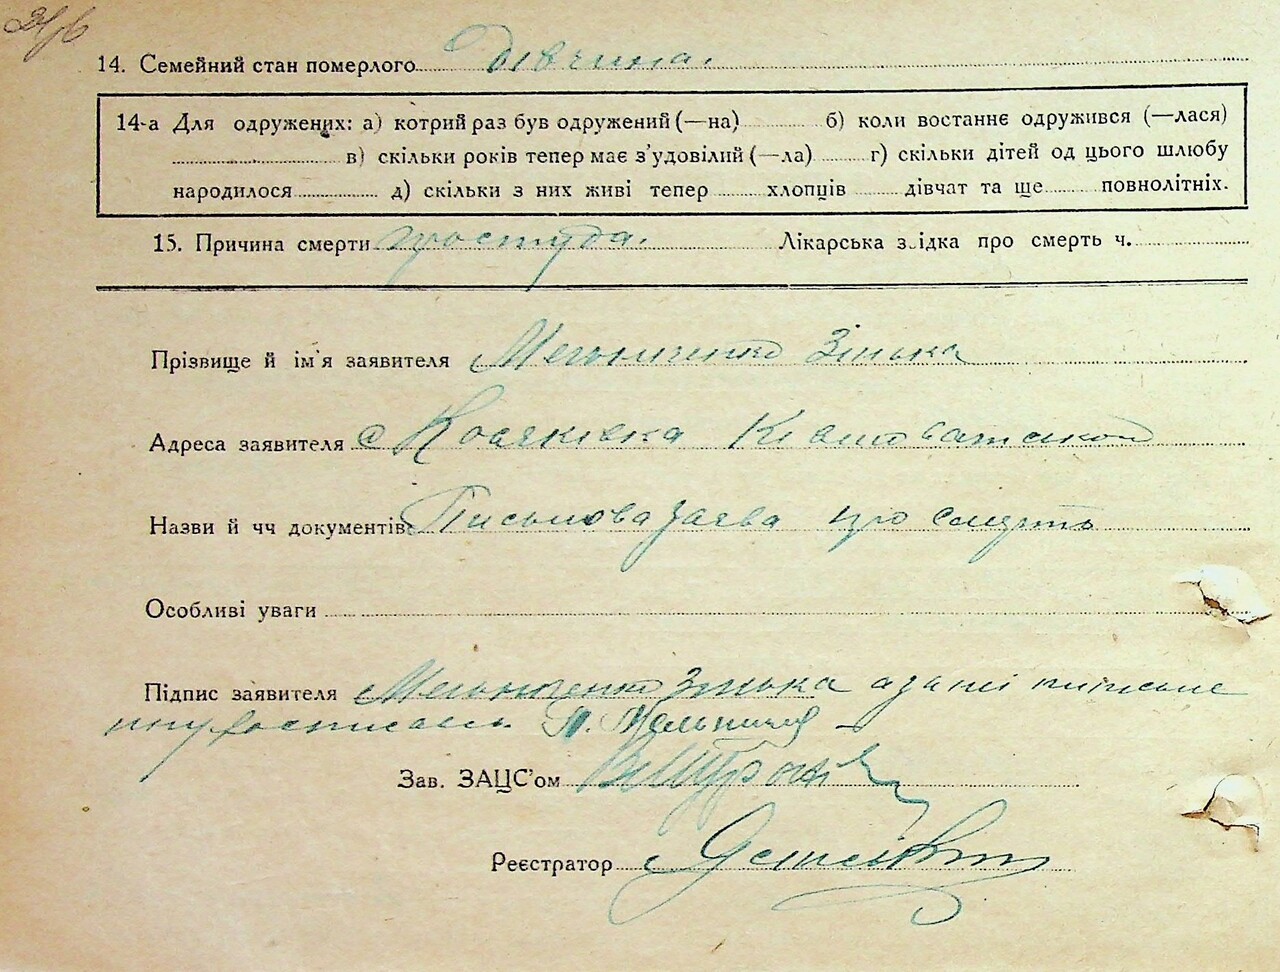 14. Семейний стан померлого Дівчина.
14-а Для одружених: а) котрий раз був одружений (—на) б) коли востаннє одружився (—лася)
в) скільки років тепер має з'удовілий (—ла) г) скільки дітей од цього шлюбу
народилося д) скільки з них живі тепер хлопців дівчат та ще повнолітніх.
15. Причина смерти простуда. Лікарська з ідка про смерть ч.
Прізвище й ім'я заявителя Мельниченко Зінька
Адреса заявителя с Косяківка
Назви й чч документів: Письмова заява про смерть
Особливі уваги
Підпис заявителя Мельниченко Зінька а за неї
Зав. ЗАЦС'ом
Реєстратор